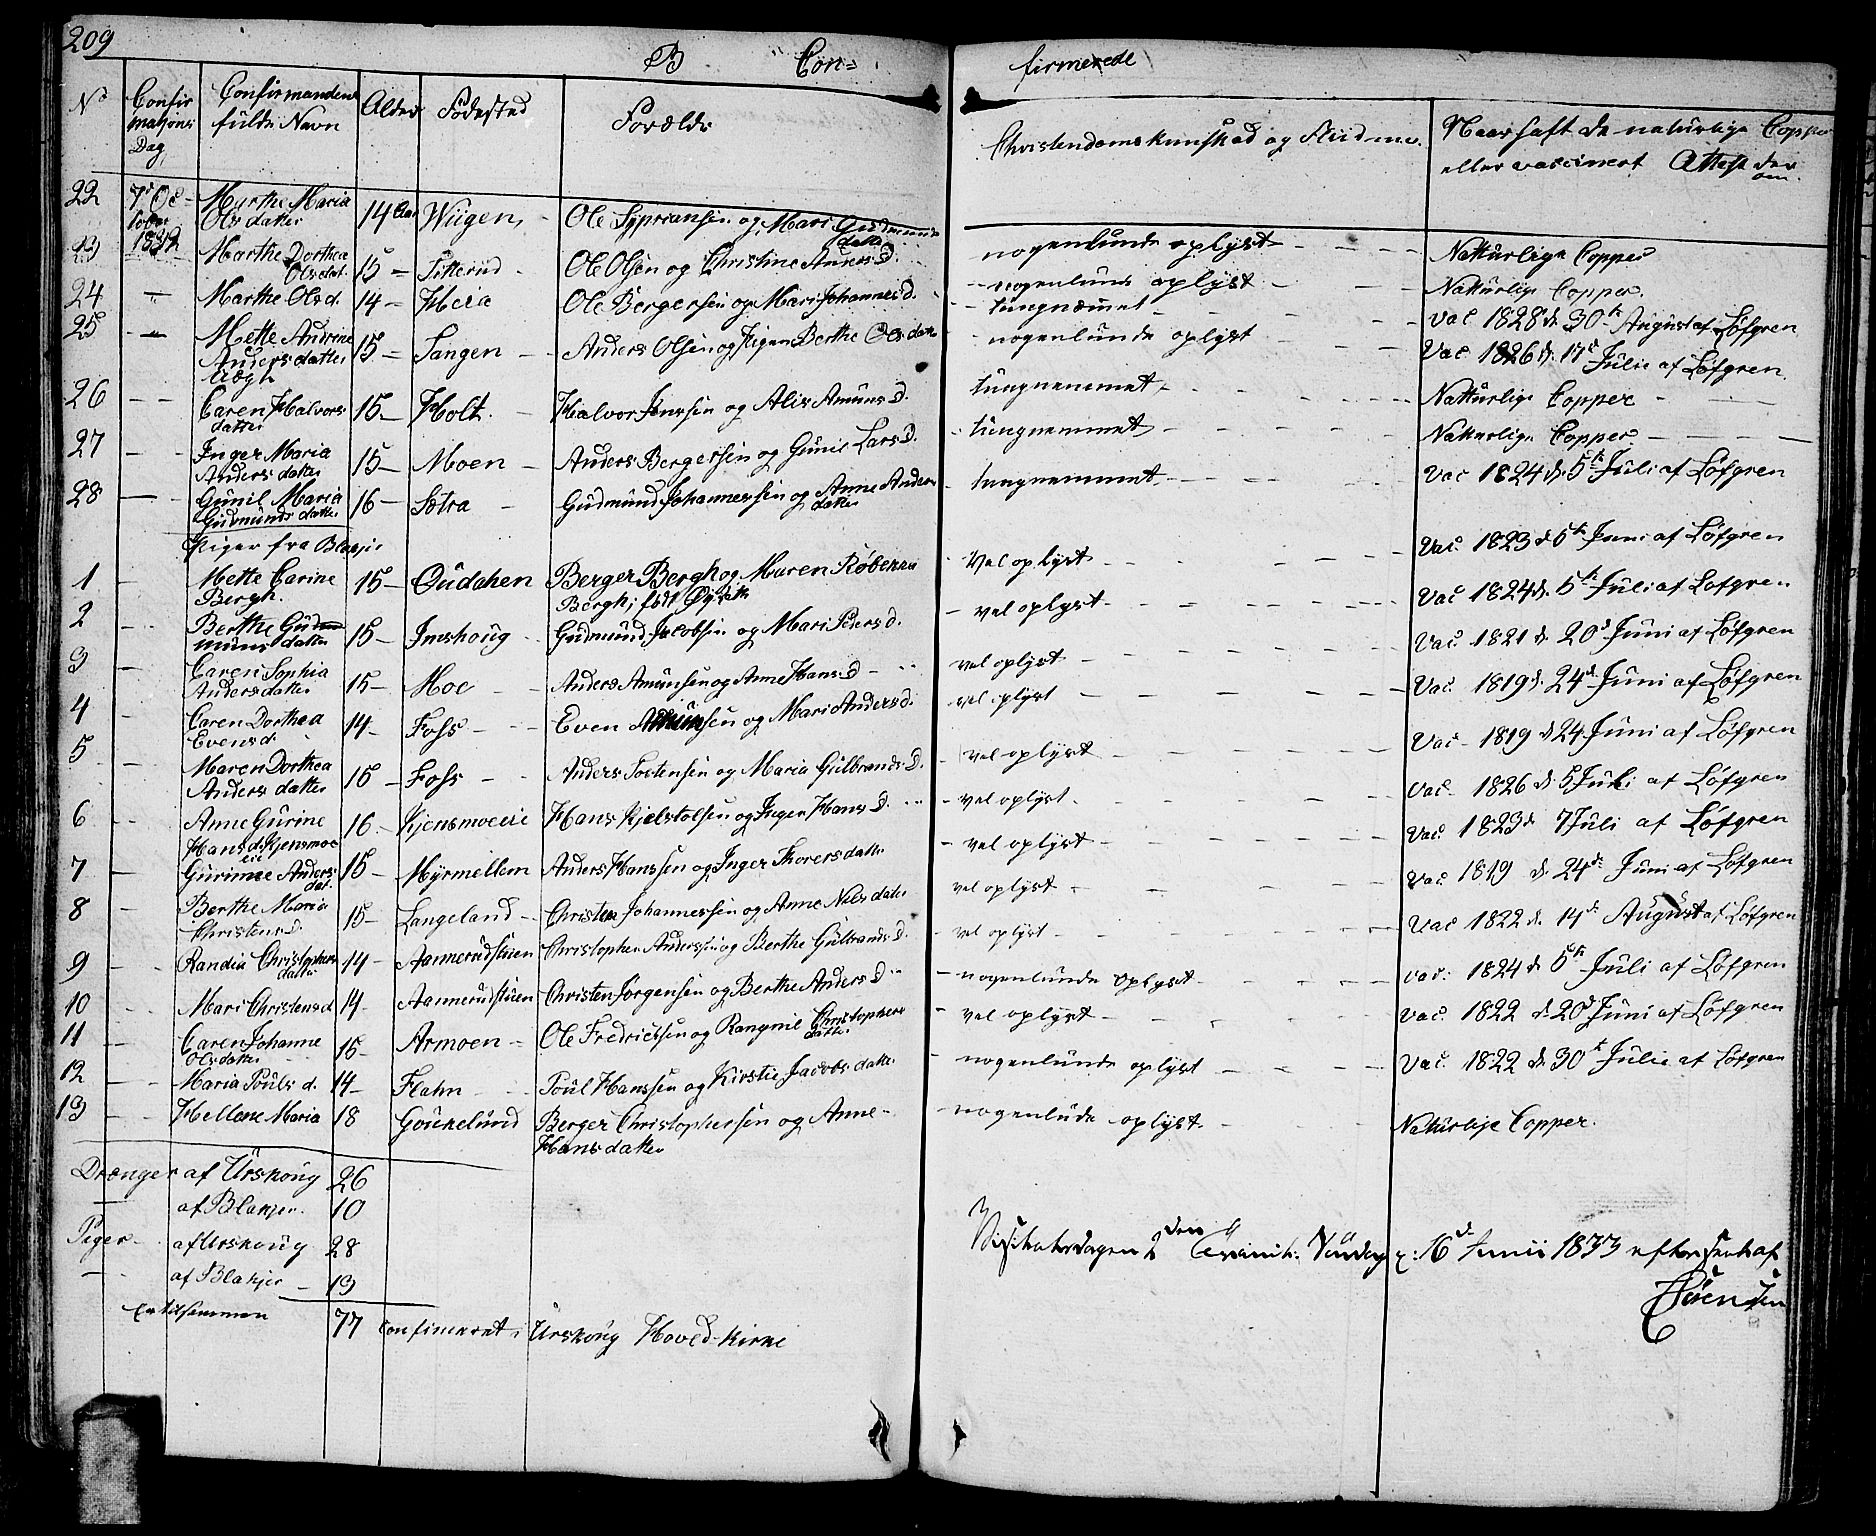 209
B Con= firmerede
No Confirmations Dag Confirmandens fulde Navn Alder Födested Forældre Christendomskunskab og Flid m.v. Naar haft de naturlige Copper eller vaccinert Attest der om.
22 7de October 1832 Marthe Maria Olsdatter 14 Aar Wiigen, Ole Sypriansen og Mari Gudmunds datter nogenlunde oplyst Natturlige Copper
23 Marthe Dorthea Olsdat. 15 Fitterud Ole Olsen og Christine Anders D. nogenlund oplyst Natturlig Copper.
24 Marthe Olsd. 14 Heia Ole Bergersen og Mari Johannes D. tungnæmet vac 1828 d. 30te August af Løfgren
25 Mette Andrine Andersdatter 15 Sangen Anders Olsen og Pigen Berthe Olsdatter nogenlunde oplyst Vac 1826 d. 17d Julie af Løfgren
26 Caren Halvors datter 15 Holt Halvor Jenssen og Alis Amuns D. tungnemmet Natturlige Copper
27 Inger Maria Anders datter 15 Moen Anders Bergersen og Gunil Lars D. tungnemmet Natturlige Copper
28 Gunil Maria Gudmunds datter 16 Sotra Gudmund Johannessen og Anne Anders datter tungnemmet vac 1824 d. 5te Juli af Løfgren
Piger fra Blakjer
1 Mette Carine Bergh. 15 Oudahen Berger Bergh og Maren Robekka Bergh, født Vel oplyst Vac. 1823 d 5te Juni af Løfgren
2 Berthe Gudmuns datter 15 Imshoug Gudmund Jacobsen og Mari Peders d. vel oplyst vac 1824 d. 5te Juli af Løfgren
3 Caren Sophia Anders datter 15 Moe Anders Amunsen og Anne Hans D vel oplyst Vac 1821 d. 20d Juni af Løfgren
4 Caren Dorthea Evens d. 14 Foss Even Amunsen og Mari Anders d. vel oplyst Vac. 1819 d. 24d Juni af Løfgren
5 Maren Dorthea Anders datter 15 Foss Anders Tostensen og Maria Gulbrands D. vel oplyst Vac 1819 d 24 Juni af Løfgren
6 Anne Gurine Hans d. Kjensmoeeie 16 Kjensmoeeie Hans Kjelstolsen og Ingen Hans D. vel oplyst vac. 1826 d. 5 Juli af Løfgren
7 Gurinne Anders dat. 15 Myrmellem Anders Hanssen og Inger Thorersdatter vel oplyst vac 1823 d 7 Juli af Løfgren
8 Berthe Maria Christens D. 15 Langeland Christen Johannessen og Anne Nels datter vel oplyst vac. 1819 d. 24de Juni af Løfgren
9 Randia Christophers datter 14 Aannerudstuen Christopher Anderssen og Berthe Gulbrands D. vel oplyst vac 1822 d. 14d August af Løfgren
10 Mari Christens d 14 Aannerudstuen Christen Jørgensen og Berthe Anders D nogenlunde oplyst vac. 1824 d. 5te Juli af Løfgren
11 Caren Johanne Olsdatter 15 Armoen Ole Fredricssen og Rangnil Christophers datter vel oplyst vac. 1822 d 20d Juni af Løfgren
12 Maria Pouls d. 14 Flahn Poul Hanssen og Kirstie Jacobs datter nogenlunde oplyst Vac. 1822 d. 30te Julie af Løfgren
13 Hellene Maria 18 Goukelund Berger Christophersen og Anne Hans datter nogenlude oplyst Naturlige Copper.
Drænger af Urskoug 26
af Blakjer. 10
Piger af Urskoug 28
af Blakjer 13
77 confirmeret i Urskoug Hoved-Kirke
Visitatsdagen 2den Trinit: Söndag : 16d Junii 1833 efterseet af
Sörensen